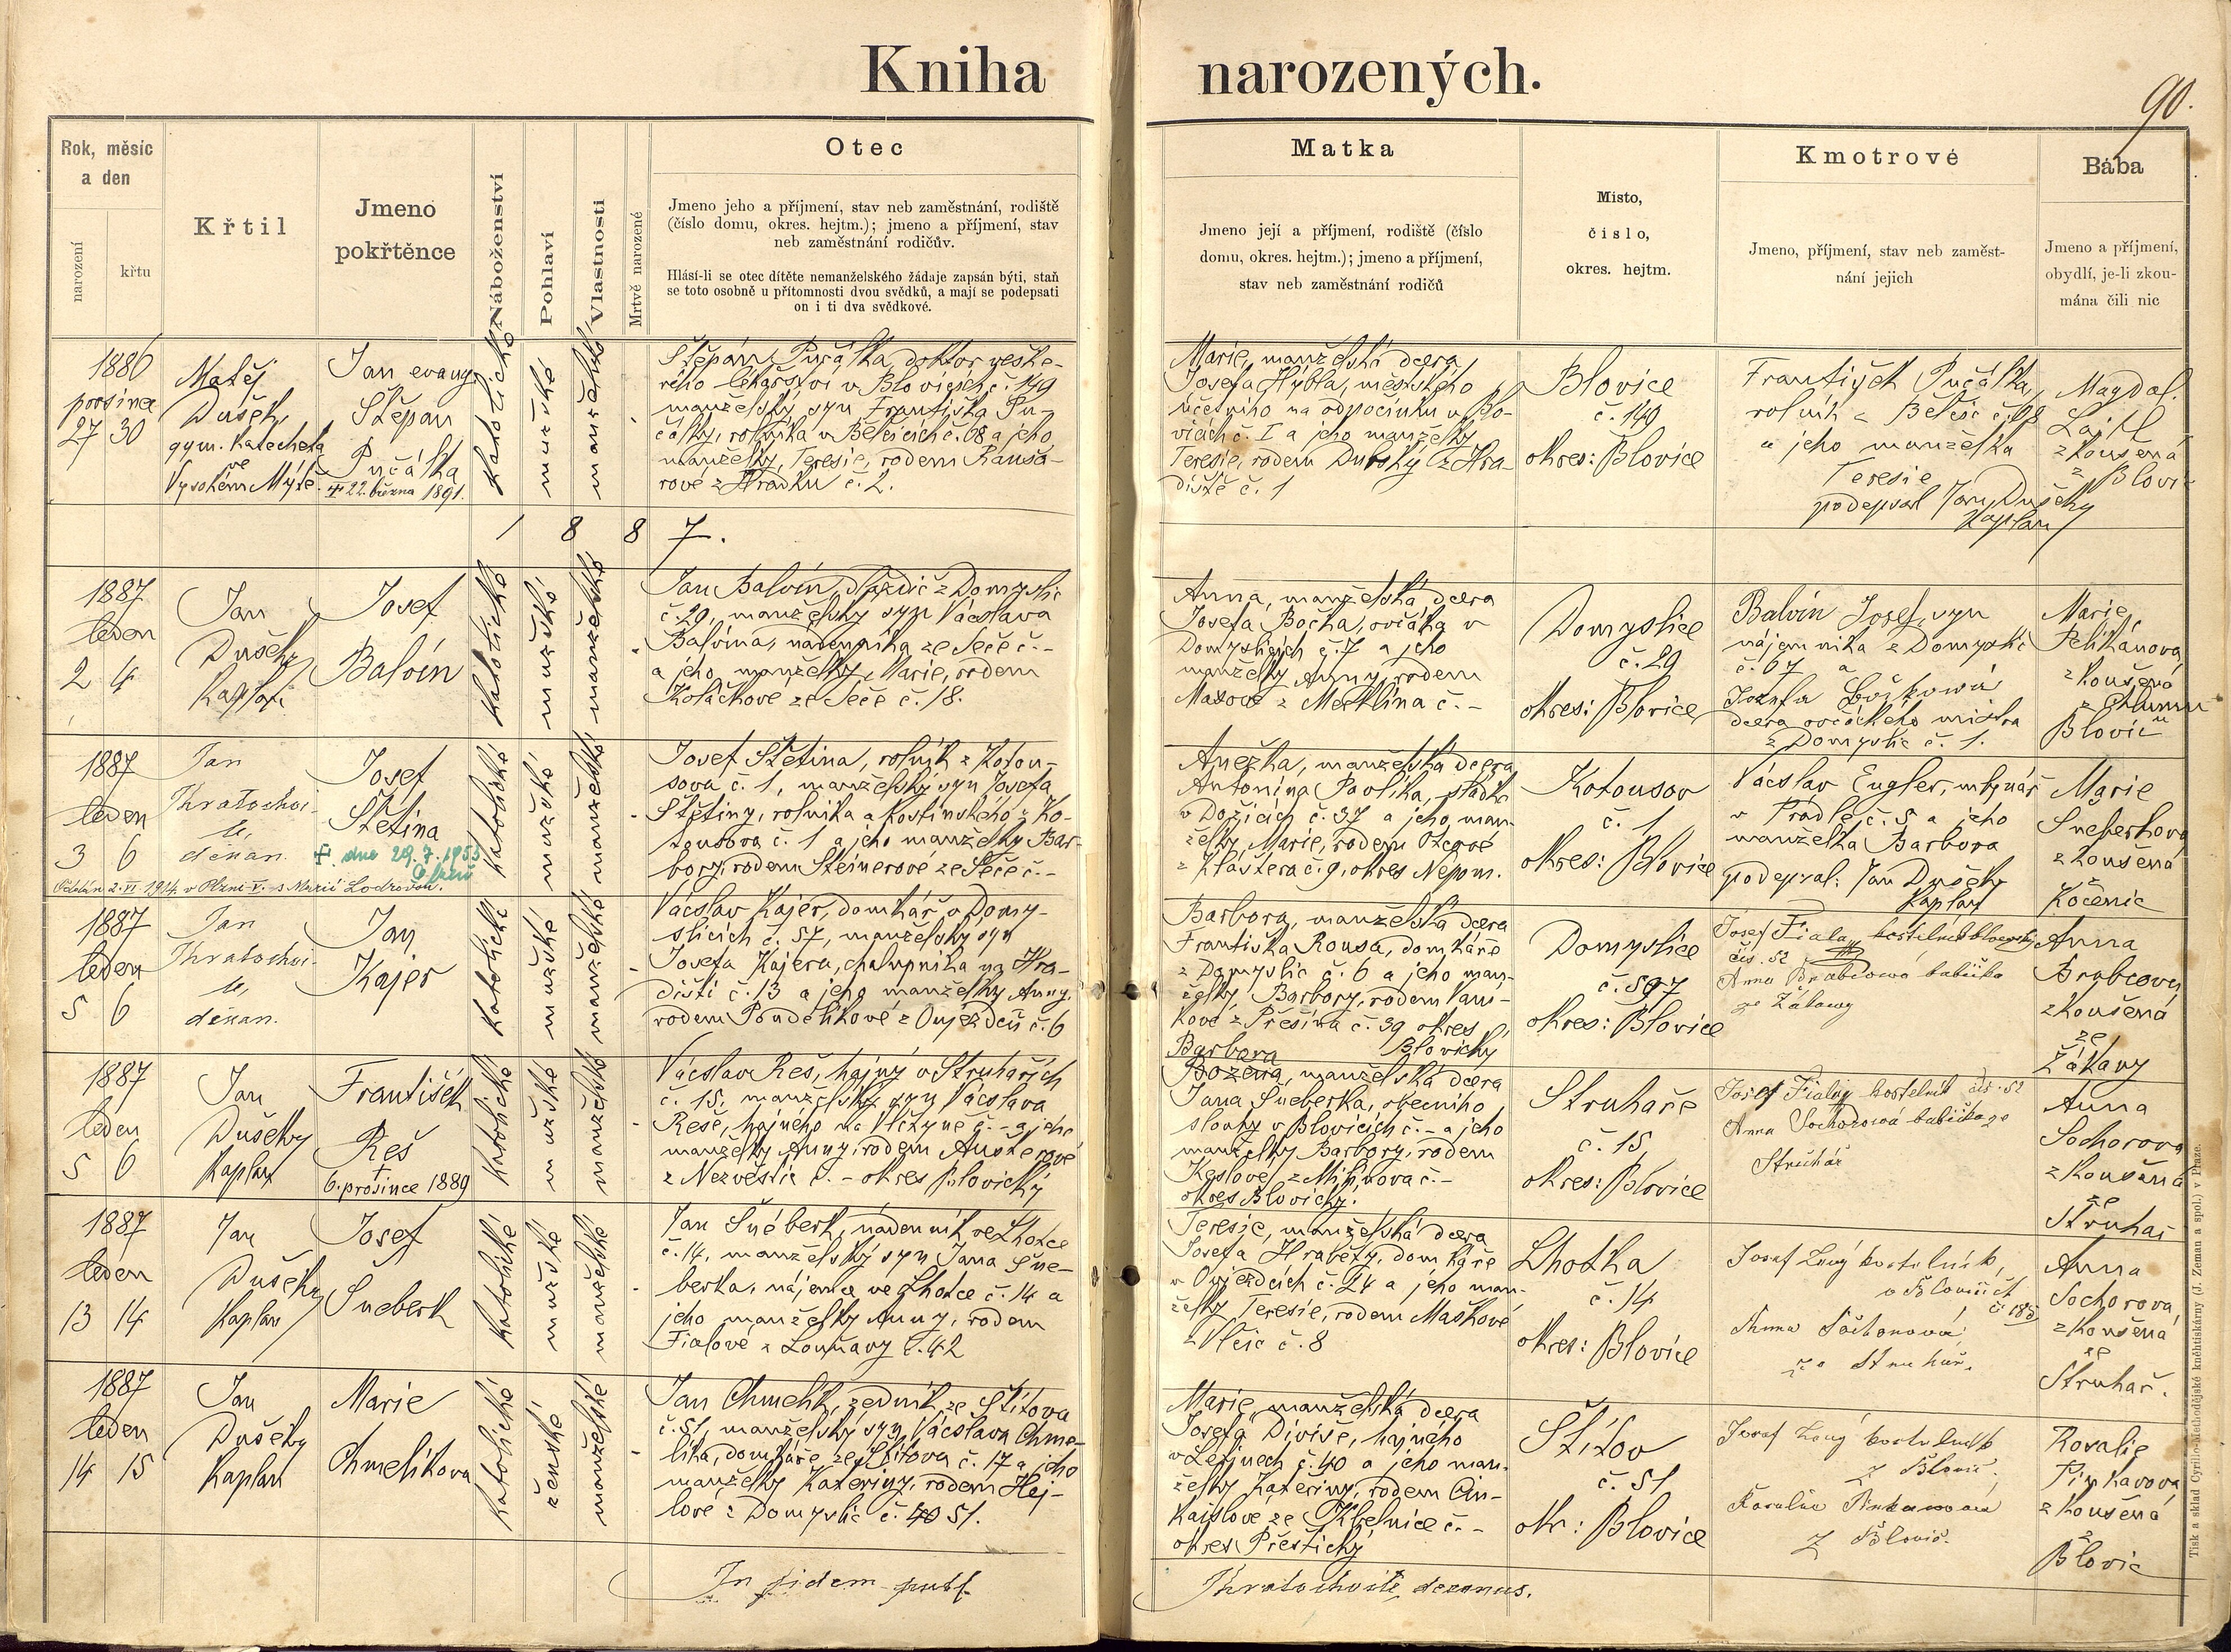 Kniha narozených.
90.
Rok, měsíc
a den
narození
křtu
Křtil
Jmeno
pokřtěnce
Náboženství
Pohlaví
Vlastnosti
Mrtvě narozené
Otec
Jmeno jeho a příjmení, stav neb zaměstnání, rodiště
(číslo domu, okres. hejtm.); jmeno a příjmení, stav
neb zaměstnání rodičův.
Hlásí-li se otec dítěte nemanželského žádaje zapsán býti, staň
se toto osobně u přítomnosti dvou svědků, a mají se podepsati
on i ti dva svědkové.
Matka
Jmeno její a příjmení, rodiště (číslo
domu, okres. hejtm.); jmeno a příjmení,
stav neb zaměstnání rodičů
Místo,
číslo,
okres. hejtm.
Kmotrové
Jmeno, příjmení, stav neb zaměst-
nání jejich
Bába
Jmeno a příjmení,
obydlí, je-li zkou-
mána čili nic
1886
prosinec
27 30
Matěj
Dušek,
gym. katecheta
ve
Vysokém Mýtě.
Jan evang.
Štěpán
Pučálka
† 22. března 1891.
katolické
mužské
manželské
Štěpán Pučálka, doktor veške-
rého lékařství v Blovicích č. 149
manželský syn Františka Pu-
čálky, rolníka v Bělčicích č. 68 a jeho
manželky, Teresie, rodem Rausa-
rové z Hrádku č. 2.
Marie, manželská dcera
Josefa Hýbla, městského
účetního na odpočinku v Blo-
vicích č. I a jeho manželky
Teresie, rodem Dubský z Hra-
diště č. 1
Blovice
č. 149
okres: Blovice
František Pučálka,
rolník z Bělčic č. 68
a jeho manželka
Teresie
podepsal Jan Dušek,
kaplan
Magdal.
Lajtl
zkoušená
z
Blovic
1 8 8 7.
1887
leden
2 4
Jan
Dušek,
kaplan
Josef
Balvín
katolické
mužské
manželské
Jan Balvín, sladič z Domyslic
č. 29, manželský syn Václava
Balvína, nádenníka ze Seče č. -
a jeho manželky Marie, rodem
Koláčkové ze Seče č. 18.
Anna, manželská dcera
Josefa Bočka, ovčáka v
Domyslicích č. 7 a jeho
manželky Anny, rodem
Maxové z Merklína č. -
Domyslice
č. 29
okres: Blovice
Balvín Josef, syn
nájemníka z Domyslic
č. 67 a
Josefa Bočkowá
dcera ovčáckého mistra
z Domyslic č. 1.
Marie
Pelikánová
zkoušená
z Chlumu
u
Blovic
1887
leden
3 6
Jan
Chratochvi-
le,
děkan.
Josef
Štětina
† dne 29. 7. 1953
Plzeň
Oddán 2. VI. 1914. v Plzni V. s Marií Lodrovou.
katolické
mužské
manželské
Josef Štětina, rolník z Kotou-
sova č. 1, manželský syn Josefa
Štětiny, rolníka a hostinského z Ko-
tousova č. 1 a jeho manželky Bar-
bory, rodem Steinerové ze Seče č. -
Anežka, manželská dcera
Antonína Pavlíka, sládka
v Dožicích č. 37 a jeho man-
želky Marie, rodem Otcové
z Kláštera č. 9, okres Nepom.
Kotousov
č. 1
okres: Blovice
Václav Engler, mlynář
v Prádle č. 5 a jeho
manželka Barbora
podepsal: Jan Dušek,
kaplan
Marie
Sneberková
zkoušená
Kočenic
1887
leden
5 6
Jan
Chratochvi-
le,
děkan.
Jan
Kajer
katolické
mužské
manželské
Václav Kajer, domkář v Domy-
slicích č. 57, manželský syn
Josefa Kajera, chalupníka na Hra-
dišti č. 13 a jeho manželky Anny,
rodem Poudělkové z Oujezdců č. 6
Barbora, manželská dcera
Františka Rousa, domkáře
z Domyslic č. 6 a jeho man-
želky Barbory, rodem Vaní-
kové z Přešína č. 39 okres
Blovický
Domyslice
č. 597
okres: Blovice
Josef Fialay kostelník blovický
čís. 52
Anna Brabcowá babička
ze Žákawy
Anna
Brabcová
zkoušená
ze
Žákavy
1887
leden
5 6
Jan
Dušek,
kaplan
František
Reš
†
6. prosince 1889
katolické
mužské
manželské
Václav Reš, hajný v Struhařích
č. 15, manželský syn Václava
Reše, hajného na Vlčtýně č. - a jeho
manželky Anny, rodem Austerové
z Nezvěstic č. - okres Blovický
Barbora
Božena, manželská dcera
Jana Šneberka, obecního
slouhy v Blovicích č. - a jeho
manželky Barbory, rodem
Keslové z Milínova č. -
okres Blovický.
Struhaře
č. 15
okres: Blovice
Josef Fialay kostelník čís. 52
Anna Sochorowá babička ze
Struhař
Anna
Sochorova
zkoušená
ze
Struhař
1887
leden
13 14
Jan
Dušek,
kaplan
Josef
Šneberk
katolické
mužské
manželské
Jan Šneberk, nádenník ve Lhotce
č. 14, manželský syn Jana Šne-
berka, nájemce ve Lhotce č. 14 a
jeho manželky Anny, rodem
Fialové z Louňavy č. 42
Teresie, manželská dcera
Josefa Hraběty, domkáře
v Oujezdcích č. 24 a jeho man-
želky Teresie, rodem Maškové
z Vlčic č. 8
Lhotka
č. 14
okres: Blovice
Josef Lený kostelník,
v Blovicích
č. 185
Anna Sochorová,
ze Struhař.
Anna
Sochorová
zkoušená
ze
Struhař.
1887
leden
14 15
Jan
Dušek,
kaplan
Marie
Chmelíkova
katolické
ženské
manželské
Jan Chmelík, zedník ze Štítova
č. 51, manželský syn Václava Chme-
líka, domkáře ze Štítova č. 17 a jeho
manželky Kateřiny, rodem Hej-
lové z Domyslic č. 40 51.
Marie, manželská dcera
Josefa Diviše, hajného
v Letinech č. 40 a jeho man-
želky Kateřiny, rodem Cin-
kaislové ze Kbelnice č. -
okres Přeštický
Štítov
č. 51
okr: Blovice
Josef Lený kostelník
z Blovic,
z Blovic.
Rosalie
Pinkavova
zkoušená
z
Blovic
In fidem publ.
Chratochvíle decanus.
Tisk a sklad Cyrillo-Methodějské kněhtiskárny (J. Zeman a spol.) v Praze.